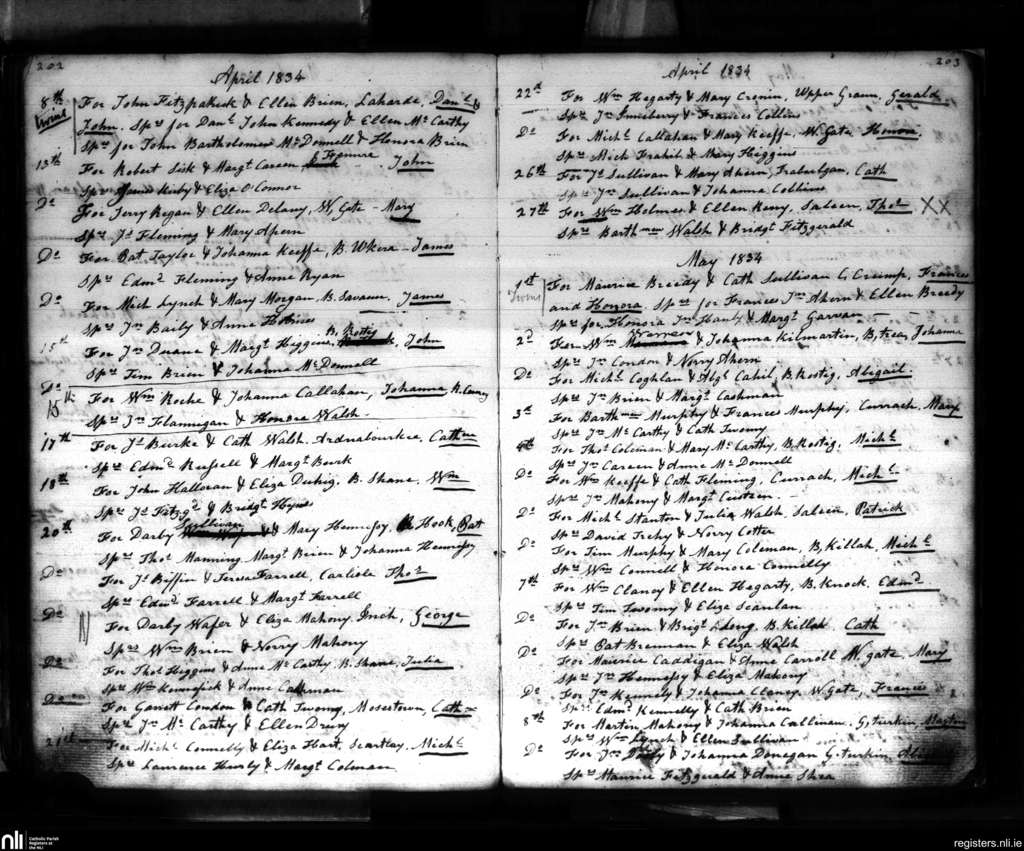 202
April 1834
8th For John Fitzpatrick & Ellen Brien, Laharde, Danl &
twins John. Sprs for Danl John Kennedy & Ellen McCarthy
Sprs for John Bartholomew McDonnell & Honora Brien
13th For Robert Sisk & Margt Careen John
Sprs Kirby & Eliza O'Connor
Do For Jerry Regan & Ellen Delany, W. Gate - Mary
Sprs Js Fleming & Mary Ahern
Do For Pat Taylor & Johanna Keeffe, B. - James
Sprs Edmd Fleming & Anne Ryan
Do For Mich Lynch & Mary Morgan, B. James
Sprs Jn Baily & Anne Holmes
15th For Jn Duane & Margt Higgins, B. Rosty John
Sprs Tim Brien & Johanna McDonnell
Do
15th For Wm Roche & Johanna Callahan, Johanna
Sprs Jn Flannugan & Honora Walsh.
17th For Js Burke & Cath Walsh, Ardnabourkea, Cath
Sprs Edmd Russell & Margt Burk
18th For John Halloran & Eliza B. Shane, Wm
Sprs Js Fitzgd & Bridgt Hyes
20th For Darby Sullivan & Mary Hennessy, Hook, Pat
Sprs Thos Manning Margt Brien & Johanna Hennessy
Do For Js Biffin & Teresa Farrell, Carlisle Thos
Sprs Edmd Farrell & Margt Farrell
Do For Darby Wafer & Eliza Mahony Inch, George
Sprs Wm Brien & Norry Mahony
Do For Thos Higgins & Anne McCarthy B. Shane, Julia
Sprs Wm & Anne Cashman
Do For Garrett Condon & Cath Twomy, Mosestown, Cath
Sprs Jn McCarthy & Ellen
21st For Michl Connelly & Eliza Hart, Scartlay, Michl
Sprs Laurence Hurly & Margt Colman
203
April 1834
22d For Wm Hegarty & Mary Cronin, Upper Graun, Gerald
Sprs Jn & Frances Collins
Do For Michl Callahan & Mary Keeffe, W. Gate Honora
Sprs Mich Frahil & Mary Higgins
26th For Js Sullivan & Mary Ahern, Trabulgan, Cath
Sprs Jn Sullivan & Johanna Collins
27th For Wm Holmes & Ellen Keny, Saleen, Thos XX
Sprs Barthmew Walsh & Bridgt Fitzgerald
May 1834
1st For Maurice Breedy & Cath Sullivan C. Crump, Frances
twins and Honora. Sprs for Frances Jn Ahern & Ellen Breedy
Sprs for Honora Jn & Margt Garvan
2d For Wm & Johanna Kilmartin, Johanna
Sprs Jn Condon & Norry Ahern
Do For Michl Coghlan & Abgl Cahil, B. Rostig, Abigail.
Sprs Jn Brien & Margt Cashman
3d For Barthmew Murphy & Frances Murphy, Currach, Mary
Sprs Jn McCarthy & Cath Twomy
4th For Thos Coleman & Mary McCarthy, B. Rostig, Michl
Sprs Jn Careen & Anne McDonnell
Do For Wm Keeffe & Cath Fleming, Currach, Michl
Sprs Jn Mahony & Margt
Do For Michl Stanton & Julia Walsh, Saleen, Patrick
Sprs David & Norry Cotter
Do For Tim Murphy & Mary Coleman, B. Killah, Michl
Sprs Wm Connell & Honora Connelly
7th For Wm Clancy & Ellen Hegarty, B. Knock, Edmd
Sprs Tim Twomy & Eliza Scanlan
Do For Jn Brien & Brigt Long, B. Killah Cath
Sprs Pat Brennan & Eliza Walsh
Do For Maurice Caddigan & Anne Carroll W. gate, Mary
Sprs Jn Hennessy & Eliza Mahony
Do For Jn Kennely & Johanna Clancy, W. Gate, Frances
Sprs Edmd Kennelly & Cath Brien
8th For Martin Mahony & Johanna Callinan, G. turkin, Martin
Sprs Wm Lynch & Ellen Sullivan
Do For Jn & Johanna Donegan G. turkin,
Sprs Maurice Fitzgerald & Anne Shea
nli Catholic Parish
Registers at
the NLI
registers.nli.ie